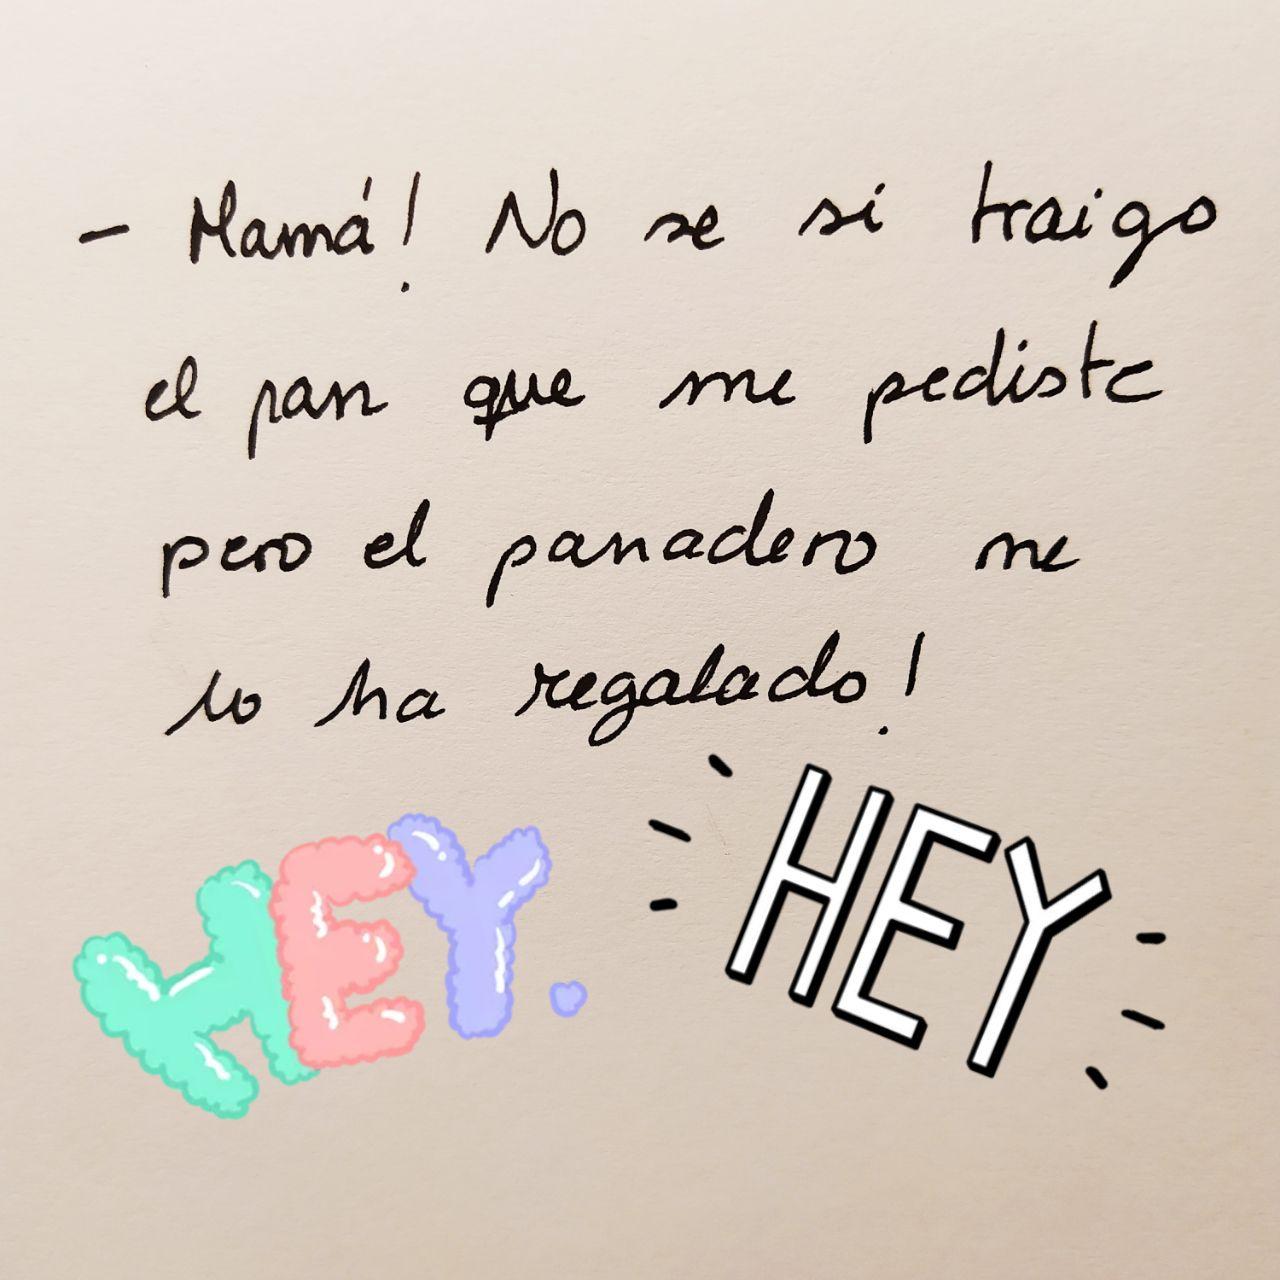 - Mamá! No se si traigo
el pan que me pediste
pero el panadero me
lo ha regalado!
HEY.
HEY